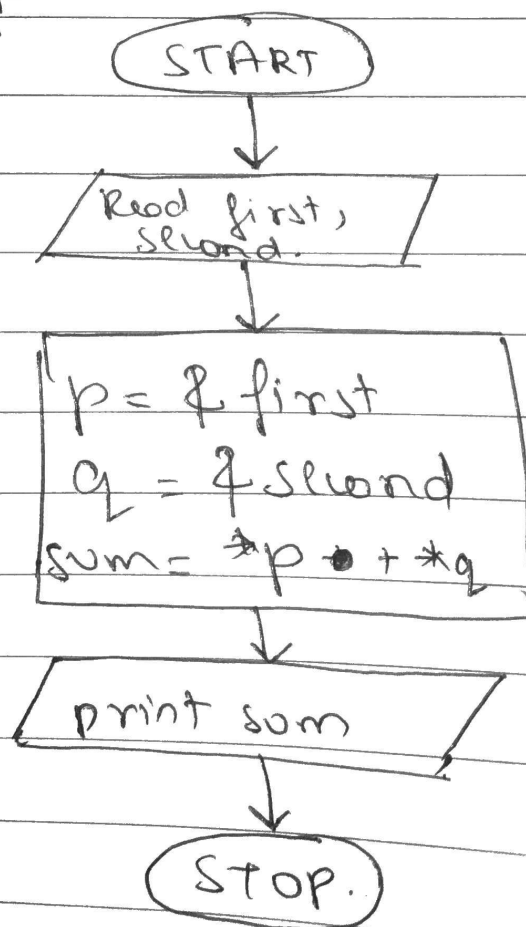 START
Read first,
second.
p = & first
q = & second
sum = *p + *q
print sum
STOP.